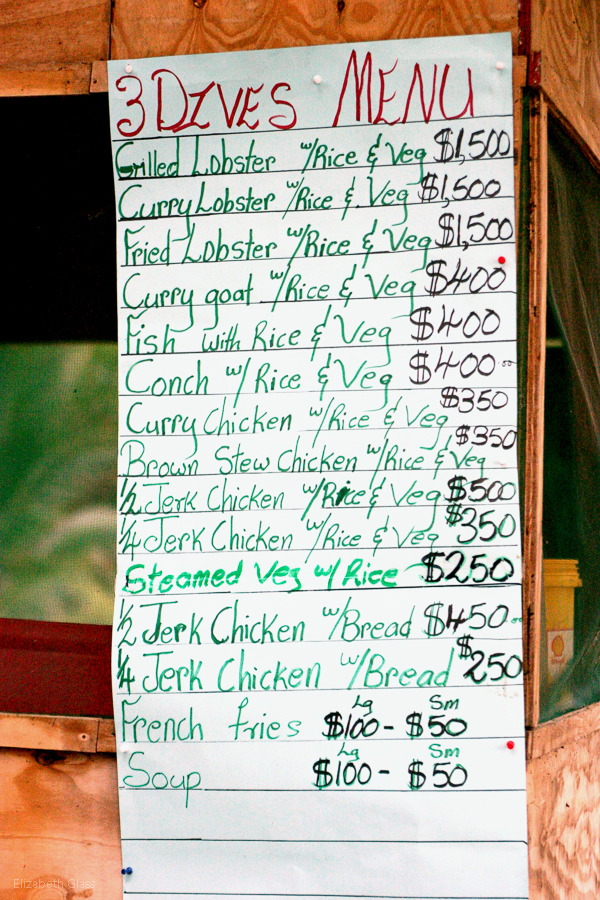 3 DIVES MENU
Grilled Lobster w/Rice & Veg $1,500
Curry Lobster w/Rice & Veg $1,500
Fried Lobster w/Rice & Veg $1,500
Curry goat w/Rice & Veg $400
Fish with Rice & Veg $400
Conch w/Rice & Veg $400.00
Curry Chicken w/Rice & Veg $350
Brown Stew Chicken w/Rice & Veg $350
1/2 Jerk Chicken w/Rice & Veg $500
1/4 Jerk Chicken w/Rice & Veg $350
Steamed Veg w/ Rice $250
1/2 Jerk Chicken w/Bread $450.00
1/4 Jerk Chicken w/Bread $250
Lg Sm
French fries $100 - $50
Lg Sm
Soup $100 - $50
Elizabeth Glass